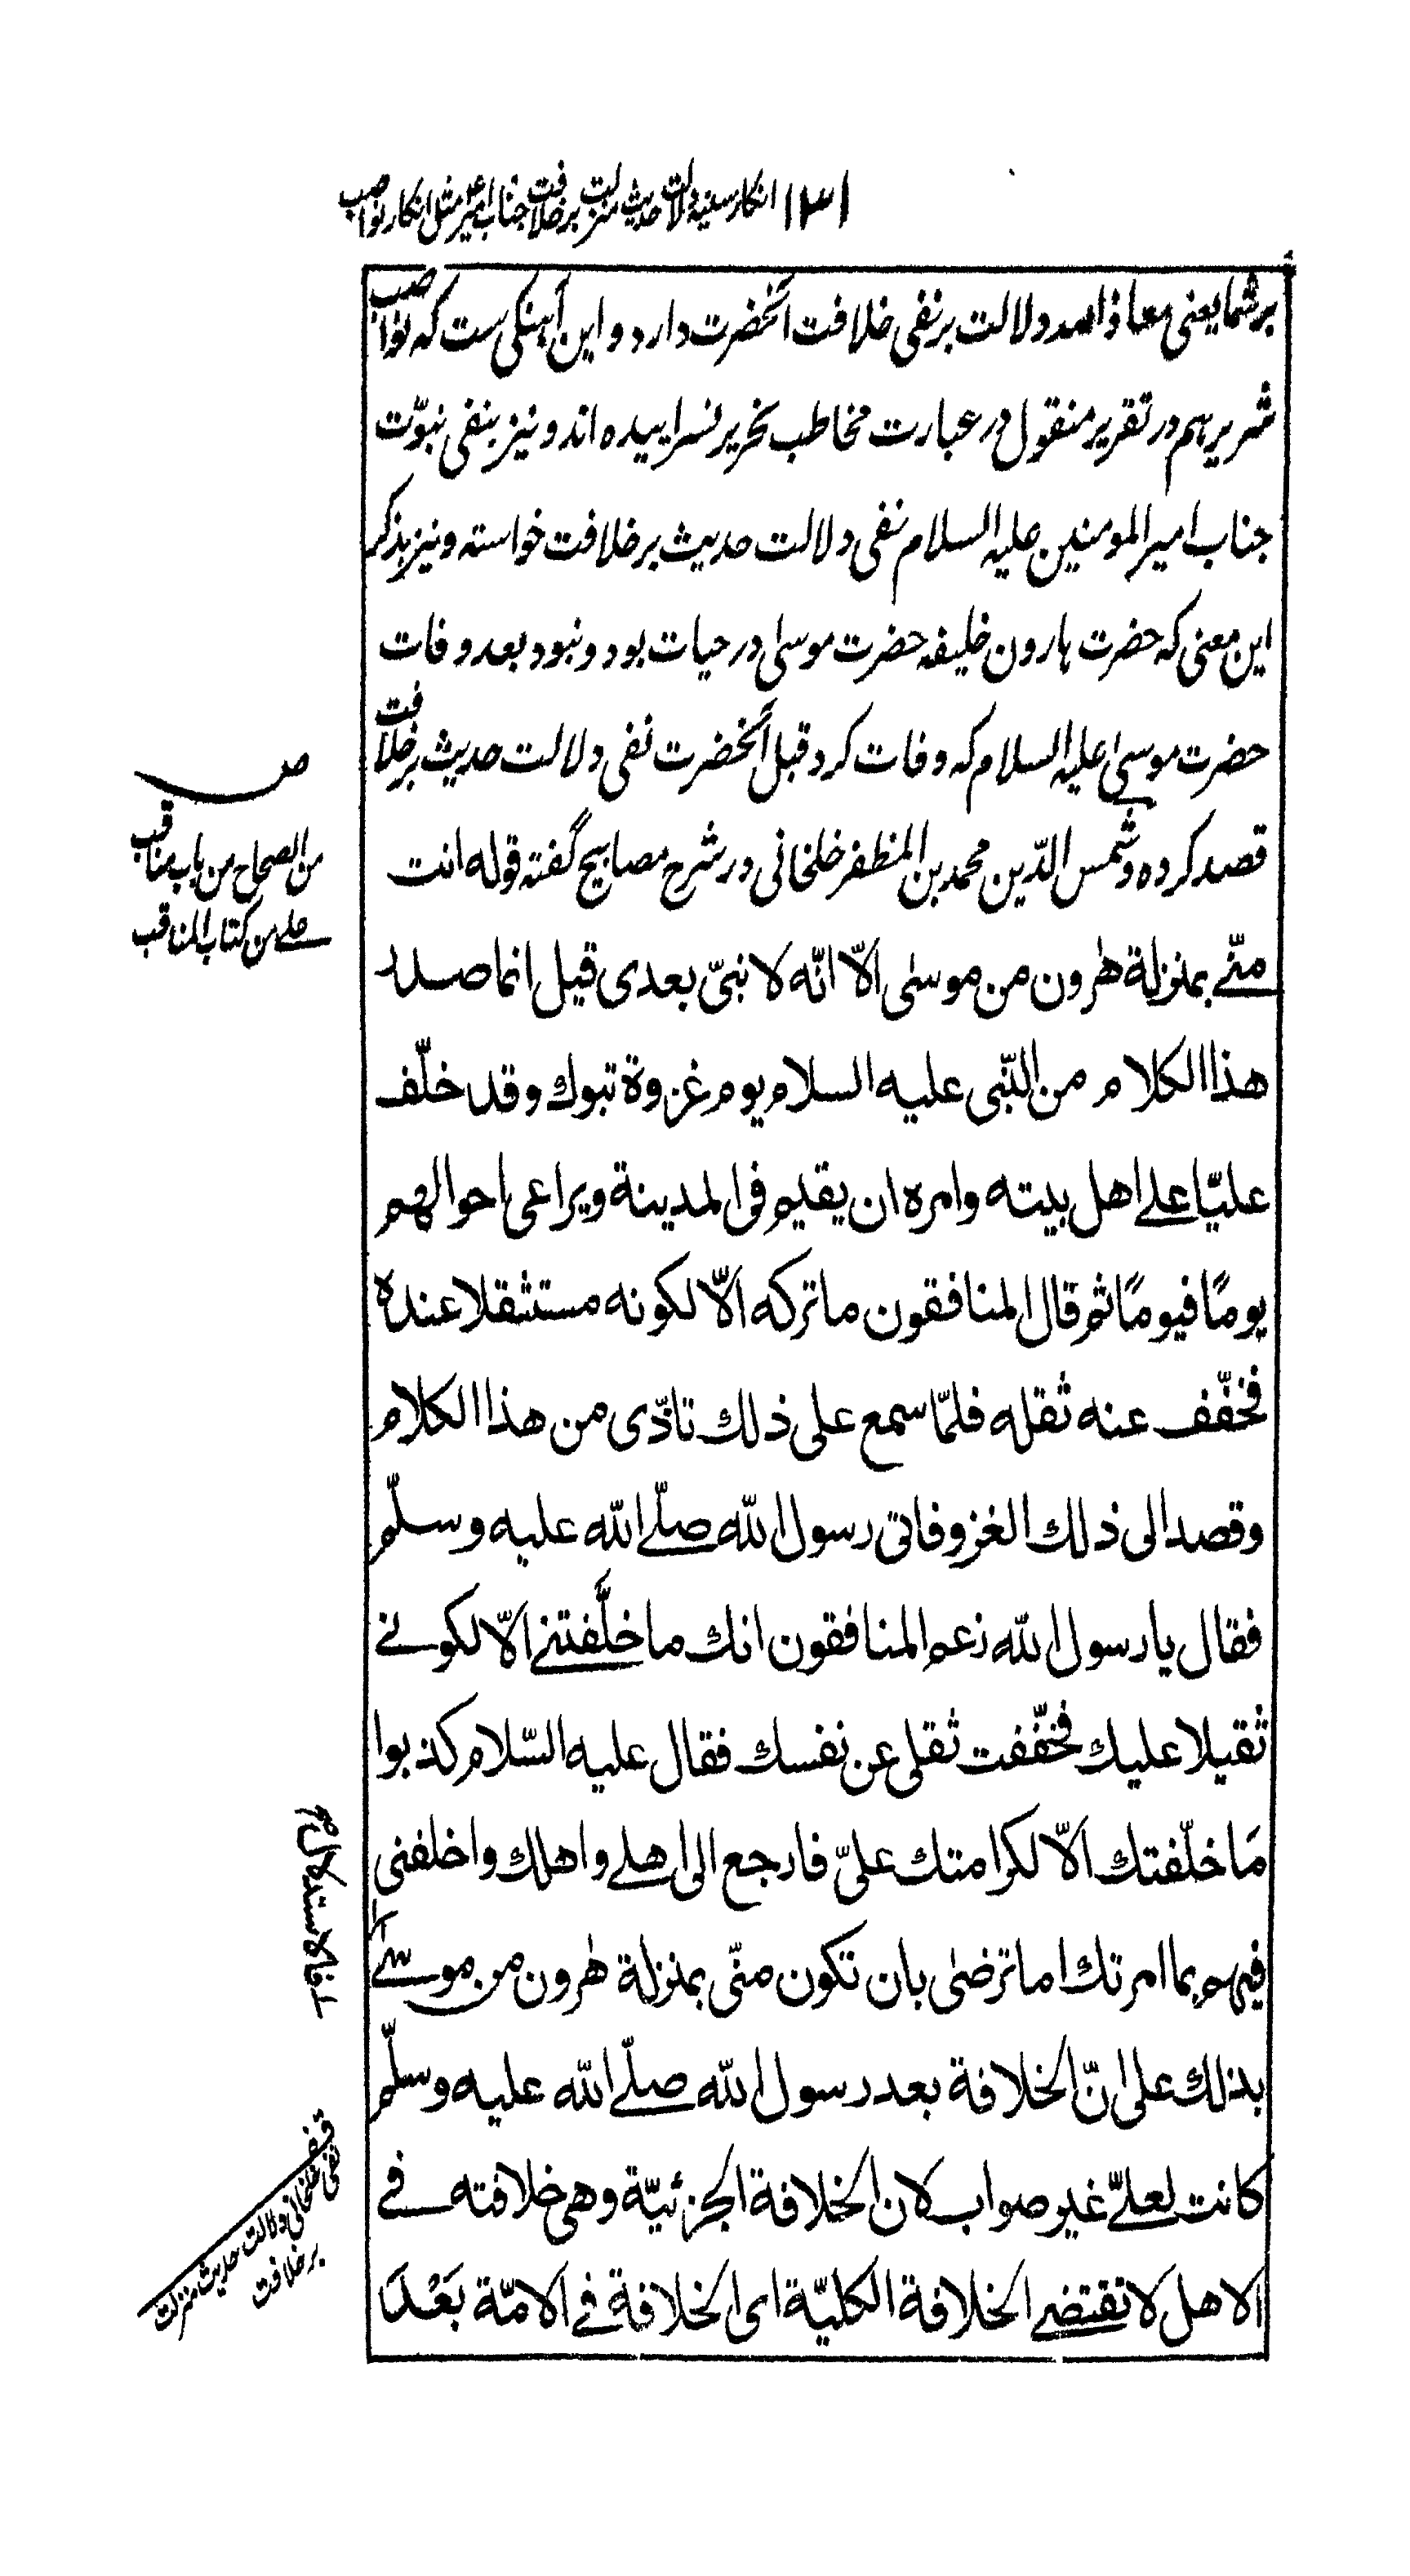 ۱۳۱ انکار سنیه دلالت حدیث منزلت بر خلافت جناب امیرؑ مثل انکار نواصب
بر شما یعنی معاذ الله دلالت بر نفی خلافت آنحضرت دارد و این آهنگی ست که نواصب
شریر هم در تقریر منقول در عبارت مخاطب نحریر نسراییده اند و نیز بنفی نبوّت
جناب امیر المومنین علیه السلام نفی دلالت حدیث بر خلافت خواسته و نیز بذکر
این معنی که حضرت هارون خلیفه حضرت موسی در حیات بود و نبود بعد وفات
حضرت موسی علیه السلام که وفات کرد قبل آنحضرت نفی دلالت حدیث بر خلافت
قصد کرده و شمس الدّین محمد بن المظفر خلخانی در شرح مصابیح گفته قوله انت
منّے بمنزلة هٰرون من موسٰی الّا انّه لا نبیّ بعدی قیل انما صدر
هذا الکلام من النّبی علیه السلام یوم غزوة تبوك وقد خلّف
علیّا علے اهل بیته وامره ان یقیم فی المدینة ویراعی احوالهم
یومًا فیومًا ثم قال المنافقون ما ترکه الّا لکونه مستثقلا عنده
فخفّف عنه ثقله فلمّا سمع علی ذلك تاذّی من هذا الکلام
وقصد الی ذلك الغزو فاتی رسول الله صلّے الله علیه وسلّم
فقال یا رسول الله زعم المنافقون انك ما خلّفتنے الّا لکونے
ثقیلا علیك فخفّفت ثقلی عن نفسك فقال علیه السّلام کذبوا
مَا خلّفتك الّا لکرامتك علیّ فارجع الی اهلے واهلك واخلفنی
فیهم بما امرتك اما ترضٰی بان تکون منّی بمنزلة هٰرون من موسےٰ
بذلك علی انّ الخلافة بعد رسول الله صلّے الله علیه وسلّم
کانت لعلیّ غیر صواب لان الخلافة الجزئیّة وهی خلافته فے
الاهل لا تقتضے الخلافة الکلیّة ای الخلافة فے الامّة بَعْدَ
ص
من الصحاح من باب مناقب
علے من کتاب المناقب
فالاستدلال
نفی خلخانی دلالت حدیث منزلت
بر خلافت